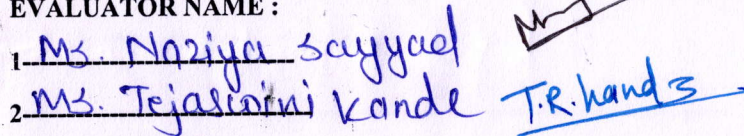 EVALUATOR NAME :
1 Ms. Naziya Sayyad
2 Ms. Tejaswini Kande T.R.